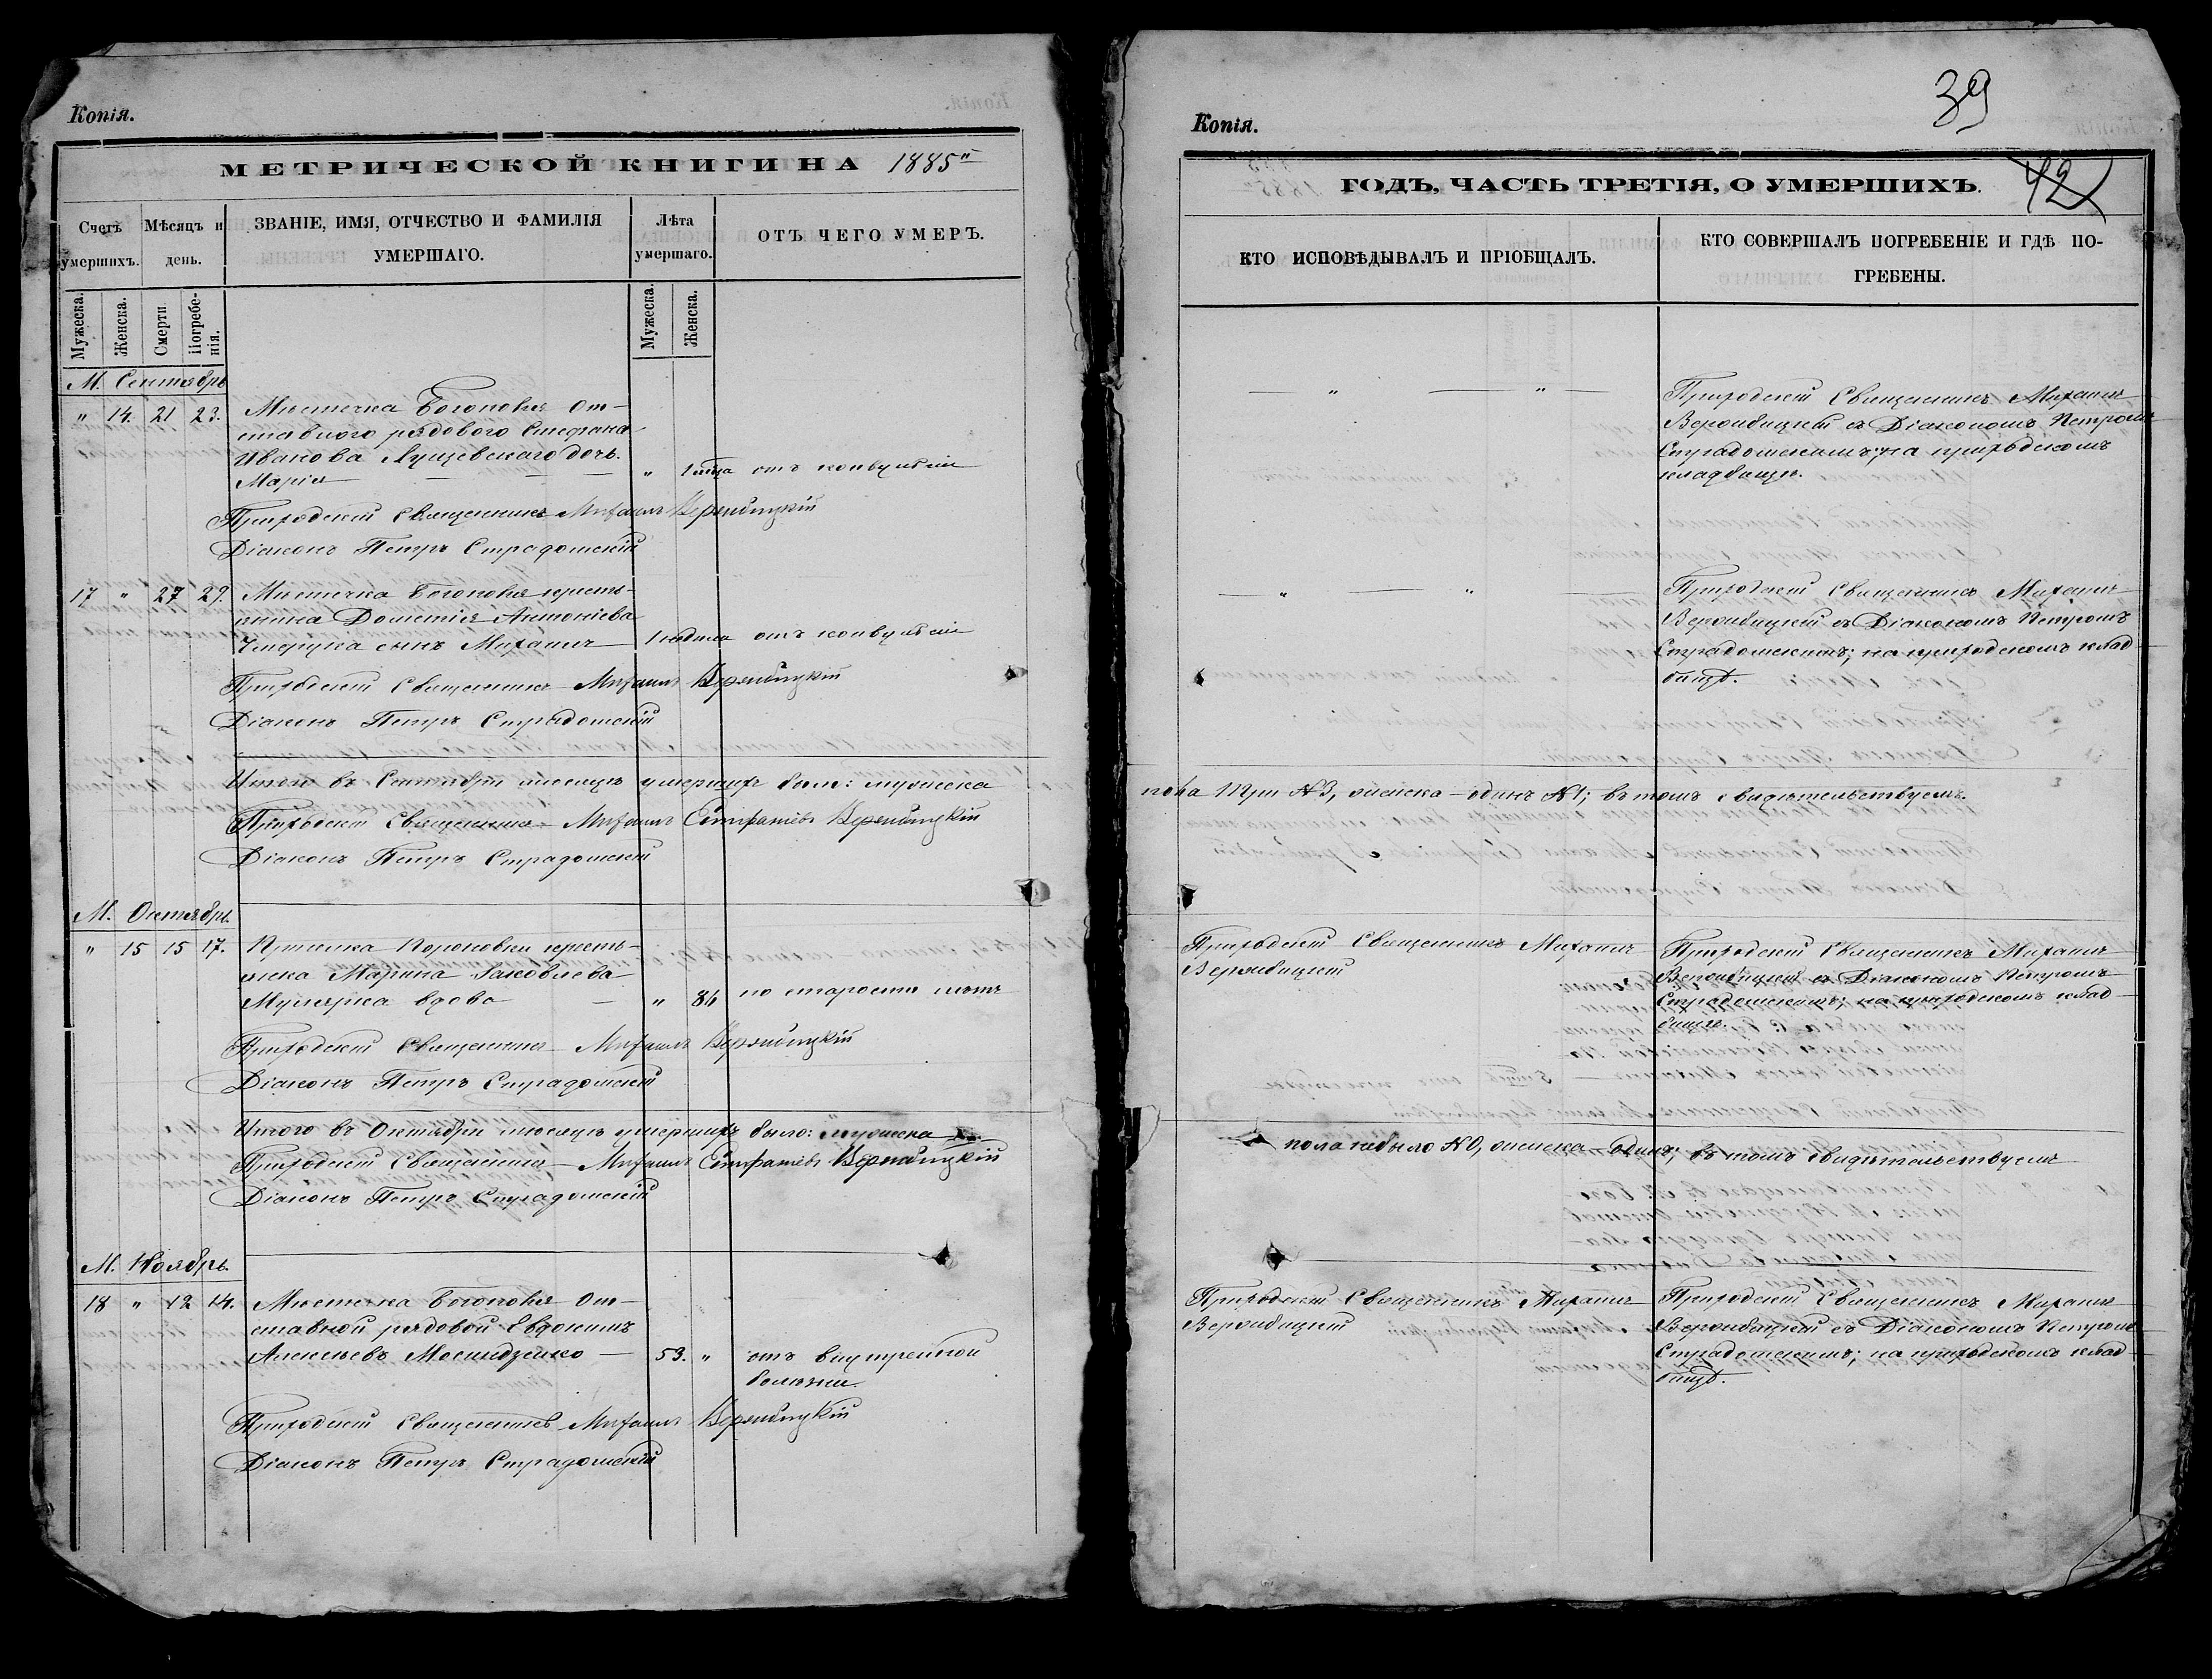 Копія.
МЕТРИЧЕСКОЙ КНИГИ НА 1885й
Счетъ умершихъ.
Мѣсяцъ и день.
ЗВАНІЕ, ИМЯ, ОТЧЕСТВО И ФАМИЛІЯ
УМЕРШАГО.
Лѣта умершаго.
ОТЪ ЧЕГО УМЕРЪ.
Мужеска.
Женска.
Смерти
Погребенія.
Мужеска.
Женска.
М. Сентябрь
" 14. 21 23. Мѣстечка Богополя от-
ставного рядового Стефана
Иванова дочь.
Марія " отъ конвульсіи
Приходскій Священникъ Михаилъ Вержбицкій
Діаконъ Петръ Страдомскій
17 " 27 29. Мѣстечка Богополя кресть-
янина Дометія Антоніева
сынъ Михаилъ отъ конвульсіи
Приходскій Священникъ Михаилъ Вержбицкій
Діаконъ Петръ Страдомскій
Итого въ Сентябрѣ мѣсяцѣ умершихъ было: мужеска
Приходскій Священникъ Михаилъ Вержбицкій
Діаконъ Петръ Страдомскій
М. Октябрь.
" 15 15 17. крестъ-
янка Марина Яковлева
вдова " 86 по старости лѣтъ
Приходскій Священникъ Михаилъ Вержбицкій
Діаконъ Петръ Страдомскій
Итого въ Октябрѣ мѣсяцѣ умершихъ было: мужеска
Приходскій Священникъ Михаилъ Вержбицкій
Діаконъ Петръ Страдомскій
М. Ноябрь.
18 " 12 14. Мѣстечка Богополя от-
ставной рядовой Евдокимъ
Алексѣевъ 53. " отъ внутренной
болѣзни.
Приходскій Священникъ Михаилъ Вержбицкій
Діаконъ Петръ Страдомскій
39
Копія.
42
ГОДЪ, ЧАСТЬ ТРЕТІЯ, О УМЕРШИХЪ.
КТО ИСПОВѢДЫВАЛЪ И ПРІОБЩАЛЪ.
КТО СОВЕРШАЛЪ ПОГРЕБЕНІЕ И ГДѢ ПО-
ГРЕБЕНЫ.
" "
Приходскій Священникъ Михаилъ
Вержбицкій съ Діакономъ Петромъ
Страдомскимъ; на приходскомъ
кладбищѣ.
" "
Приходскій Священникъ Михаилъ
Вержбицкій съ Діакономъ Петромъ
Страдомскимъ; на приходскомъ клад-
бищѣ.
пола три №3, женска - одинъ №1; въ томъ свидѣтельствуемъ.
Приходскій Священникъ Михаилъ
Вержбицкій
Приходскій Священникъ Михаилъ
Вержбицкій съ Діакономъ Петромъ
Страдомскимъ; на приходскомъ клад-
бищѣ.
пола небыло №0, женска - одинъ; въ томъ свидѣтельствуемъ
Приходскій Священникъ Михаилъ
Вержбицкій
Приходскій Священникъ Михаилъ
Вержбицкій съ Діакономъ Петромъ
Страдомскимъ; на приходскомъ клад-
бищѣ.